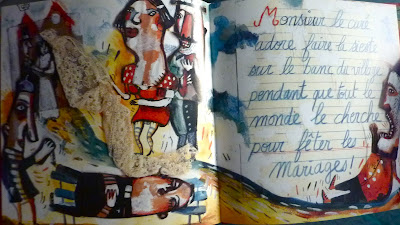 Monsieur le curé
adore faire la sieste
sur le banc du village
pendant que tout le
monde le cherche
pour fêter les
mariages!